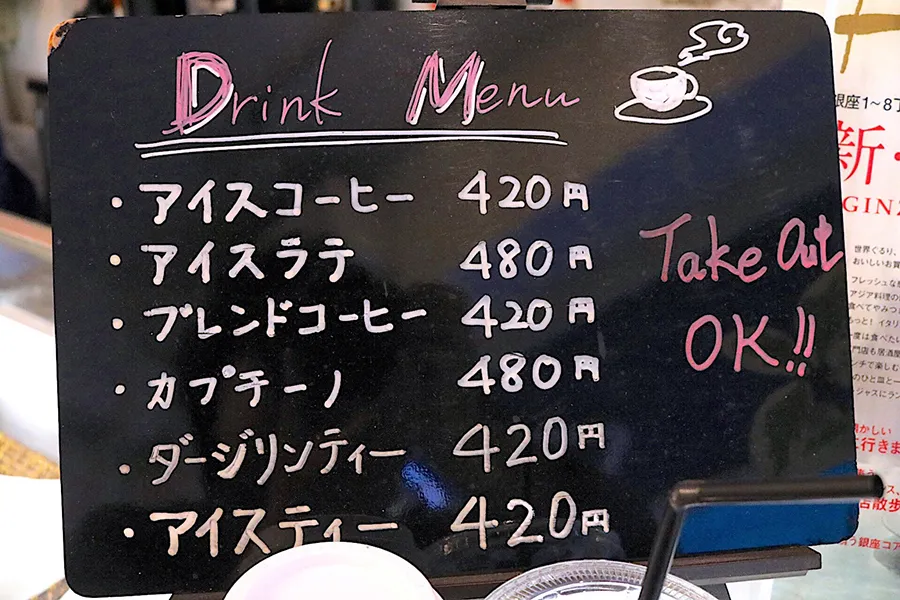 Drink Menu
・アイスコーヒー 420円
・アイスラテ 480円
・ブレンドコーヒー 420円
・カプチーノ 480円
・ダージリンティー 420円
・アイスティー 420円
Take Out
OK!!
銀座1~8丁
新・
GINZ
世界ぐるり、
おいしいお買
フレッシュな
アジア料理の
食べてやみつ
っと! イタリ
度は食べたい
門店も居酒屋
ンチで楽しむ
のひと皿と一
ジャスにラン
懐かしい
に行きま
店散歩
う銀座コア